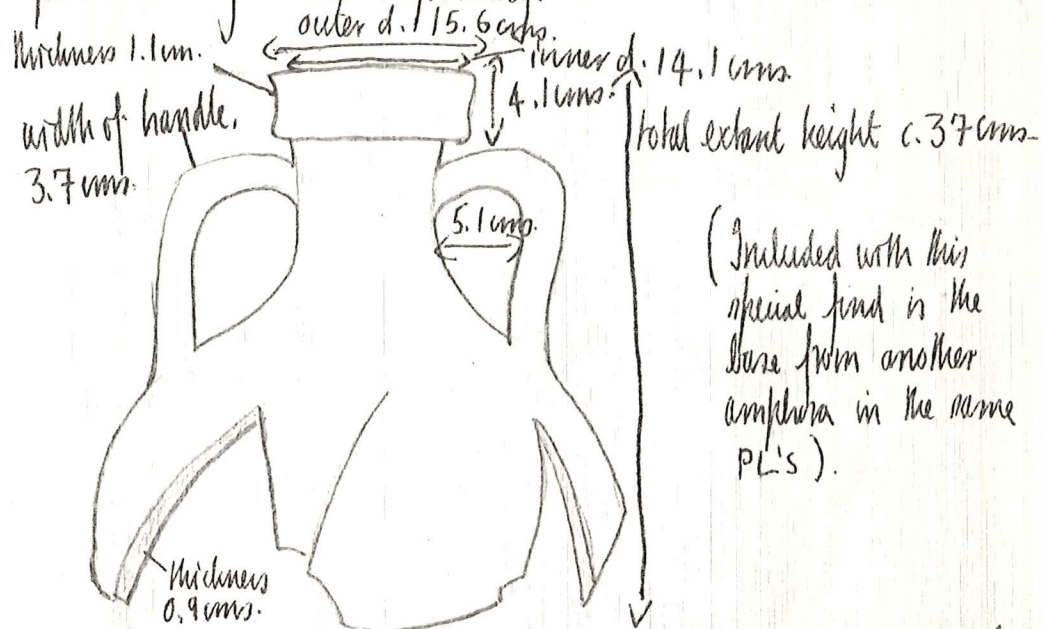 outer d. 15.6cms.
thickness 1.1cm.
inner d. 14.1cms.
4.1cms.
width of handle.
3.7cms.
total extant height c.37cms.
5.1cms.
(Included with this
special find is the
base from another
amphora in the same
PL's).
thickness
0.9cms.